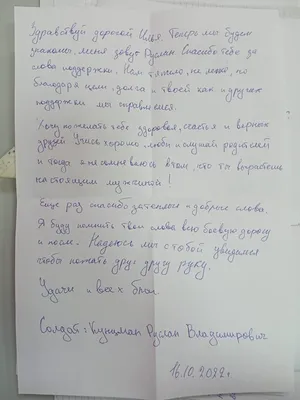 Здравствуй дорогой Илья. Теперь мы будем
знакомы, меня зовут Руслан. Спасибо тебе за
слова поддержки. Нам тяжело, не легко, но
благодаря цели, долга и твоей как и других
поддержки мы справимся.
Хочу пожелать тебе здоровья, счастья и верных
друзей. Учись хорошо, люби и слушай родителей
и тогда я не сомневаюсь в том, что ты вырастешь
настоящим мужчиной!
Ещё раз спасибо за теплые и добрые слова.
Я буду помнить твои слова всю боевую дорогу
и после. Надеюсь мы с тобой увидимся
чтобы пожать друг другу руку.
Удачи и всех благ.
Солдат: Кунцман Руслан Владимирович
16.10.2022г.